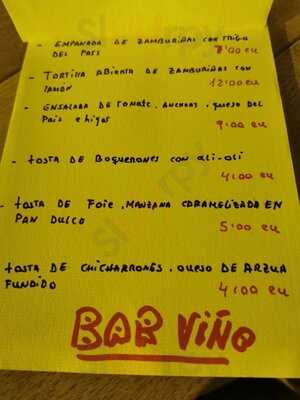 - EMPANADA DE ZAMBURIÑAS CON TRIGO
DEL PAIS 7'00 EU
- TORTILLA ABIERTA DE ZAMBURIÑAS CON
JAMON 12'00 EU
- ENSALADA DE TOMATE, ANCHOAS, QUESO DEL
PAIS E HIGOS 9'00 EU
- TOSTA DE BOQUERONES CON ALI-OLI
4'00 EU
- TOSTA DE FOIE, MANZANA CARAMELIZADA EN
PAN DULCE 5'00 EU
TOSTA DE CHICHARRONES, QUESO DE ARZUA
FUNDIDO 4'00 EU
BAR VIÑO